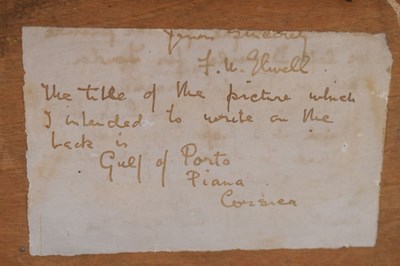 Yours sincerely
F. W. Elwell.
The title of the picture which
I intended to write on the
back is
Gulf of Porto
Piana
Corsica